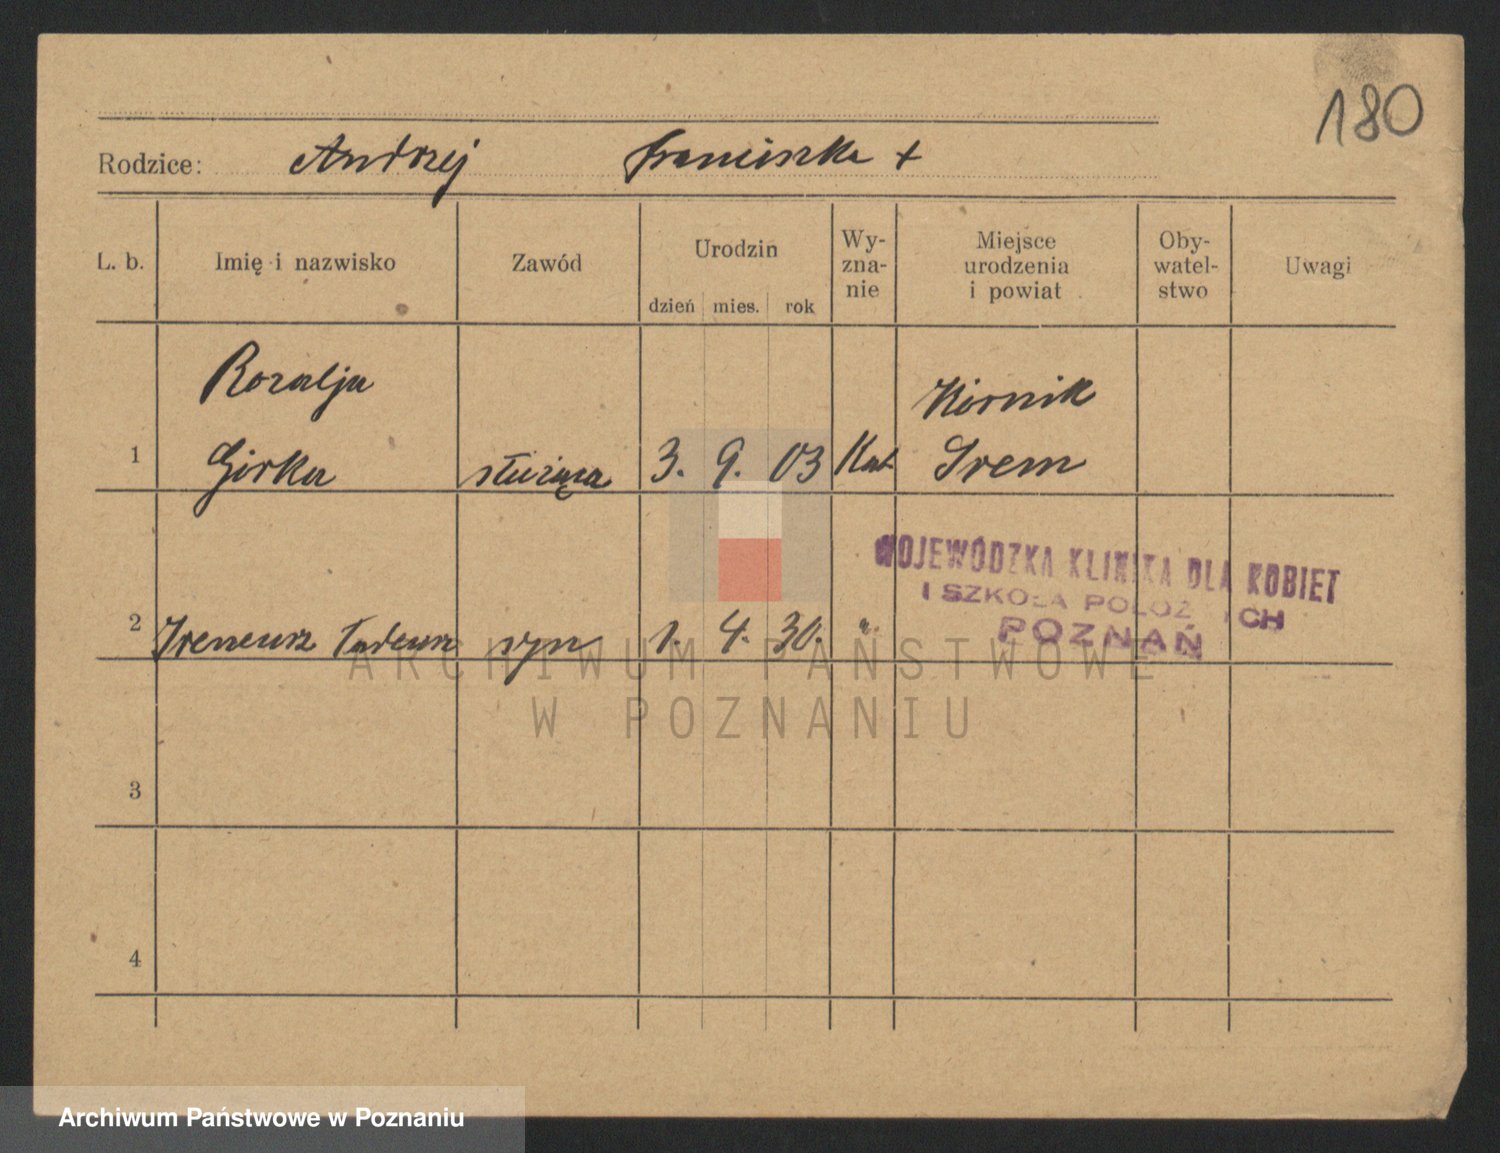 180
Rodzice: Andrzej Franciszka +
L. b. Imię i nazwisko Zawód Urodzin Wy-zna-nie Miejsce urodzenia i powiat Oby-watel-stwo Uwagi
dzień mies. rok
Rozalja Kórnik
1 Górka służąca 3. 9. 03 Kat. Śrem
WOJEWÓDZKA KLINIKA DLA KOBIET
I SZKOŁA POŁOŻ ICH
POZNAŃ
2 Ireneusz Tadeusz syn 1. 4. 30. "
ARCHIWUM PAŃSTWOWE
W POZNANIU
3
4
Archiwum Państwowe w Poznaniu